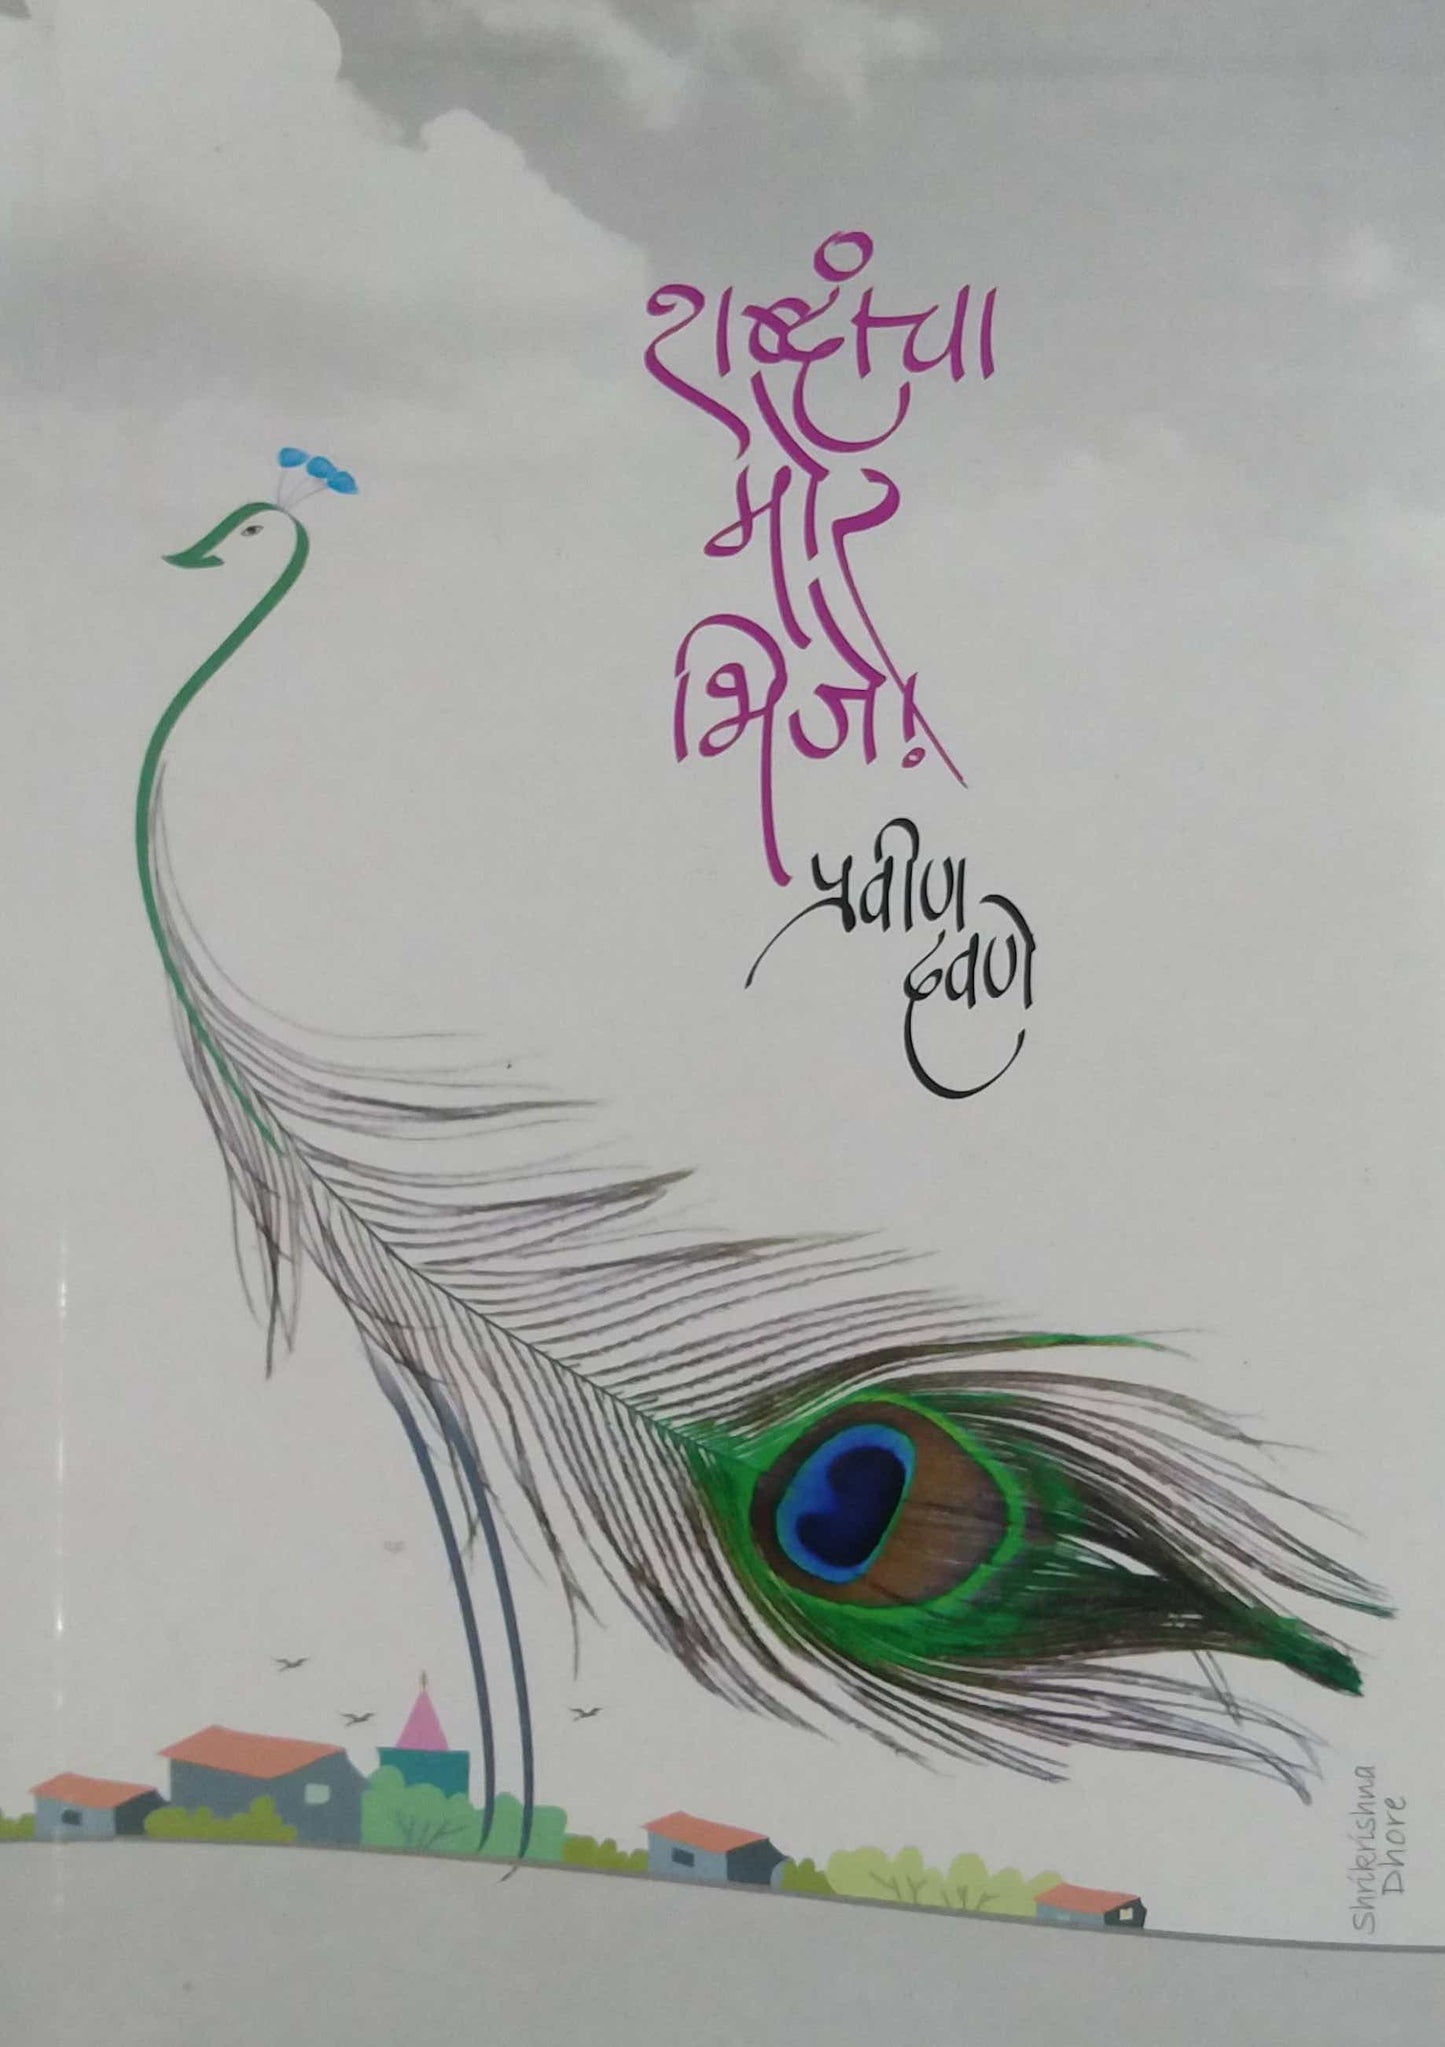 शब्दांचा
मोर
भिजे!
प्रवीण
दवणे
Shrikrishna
Dhore